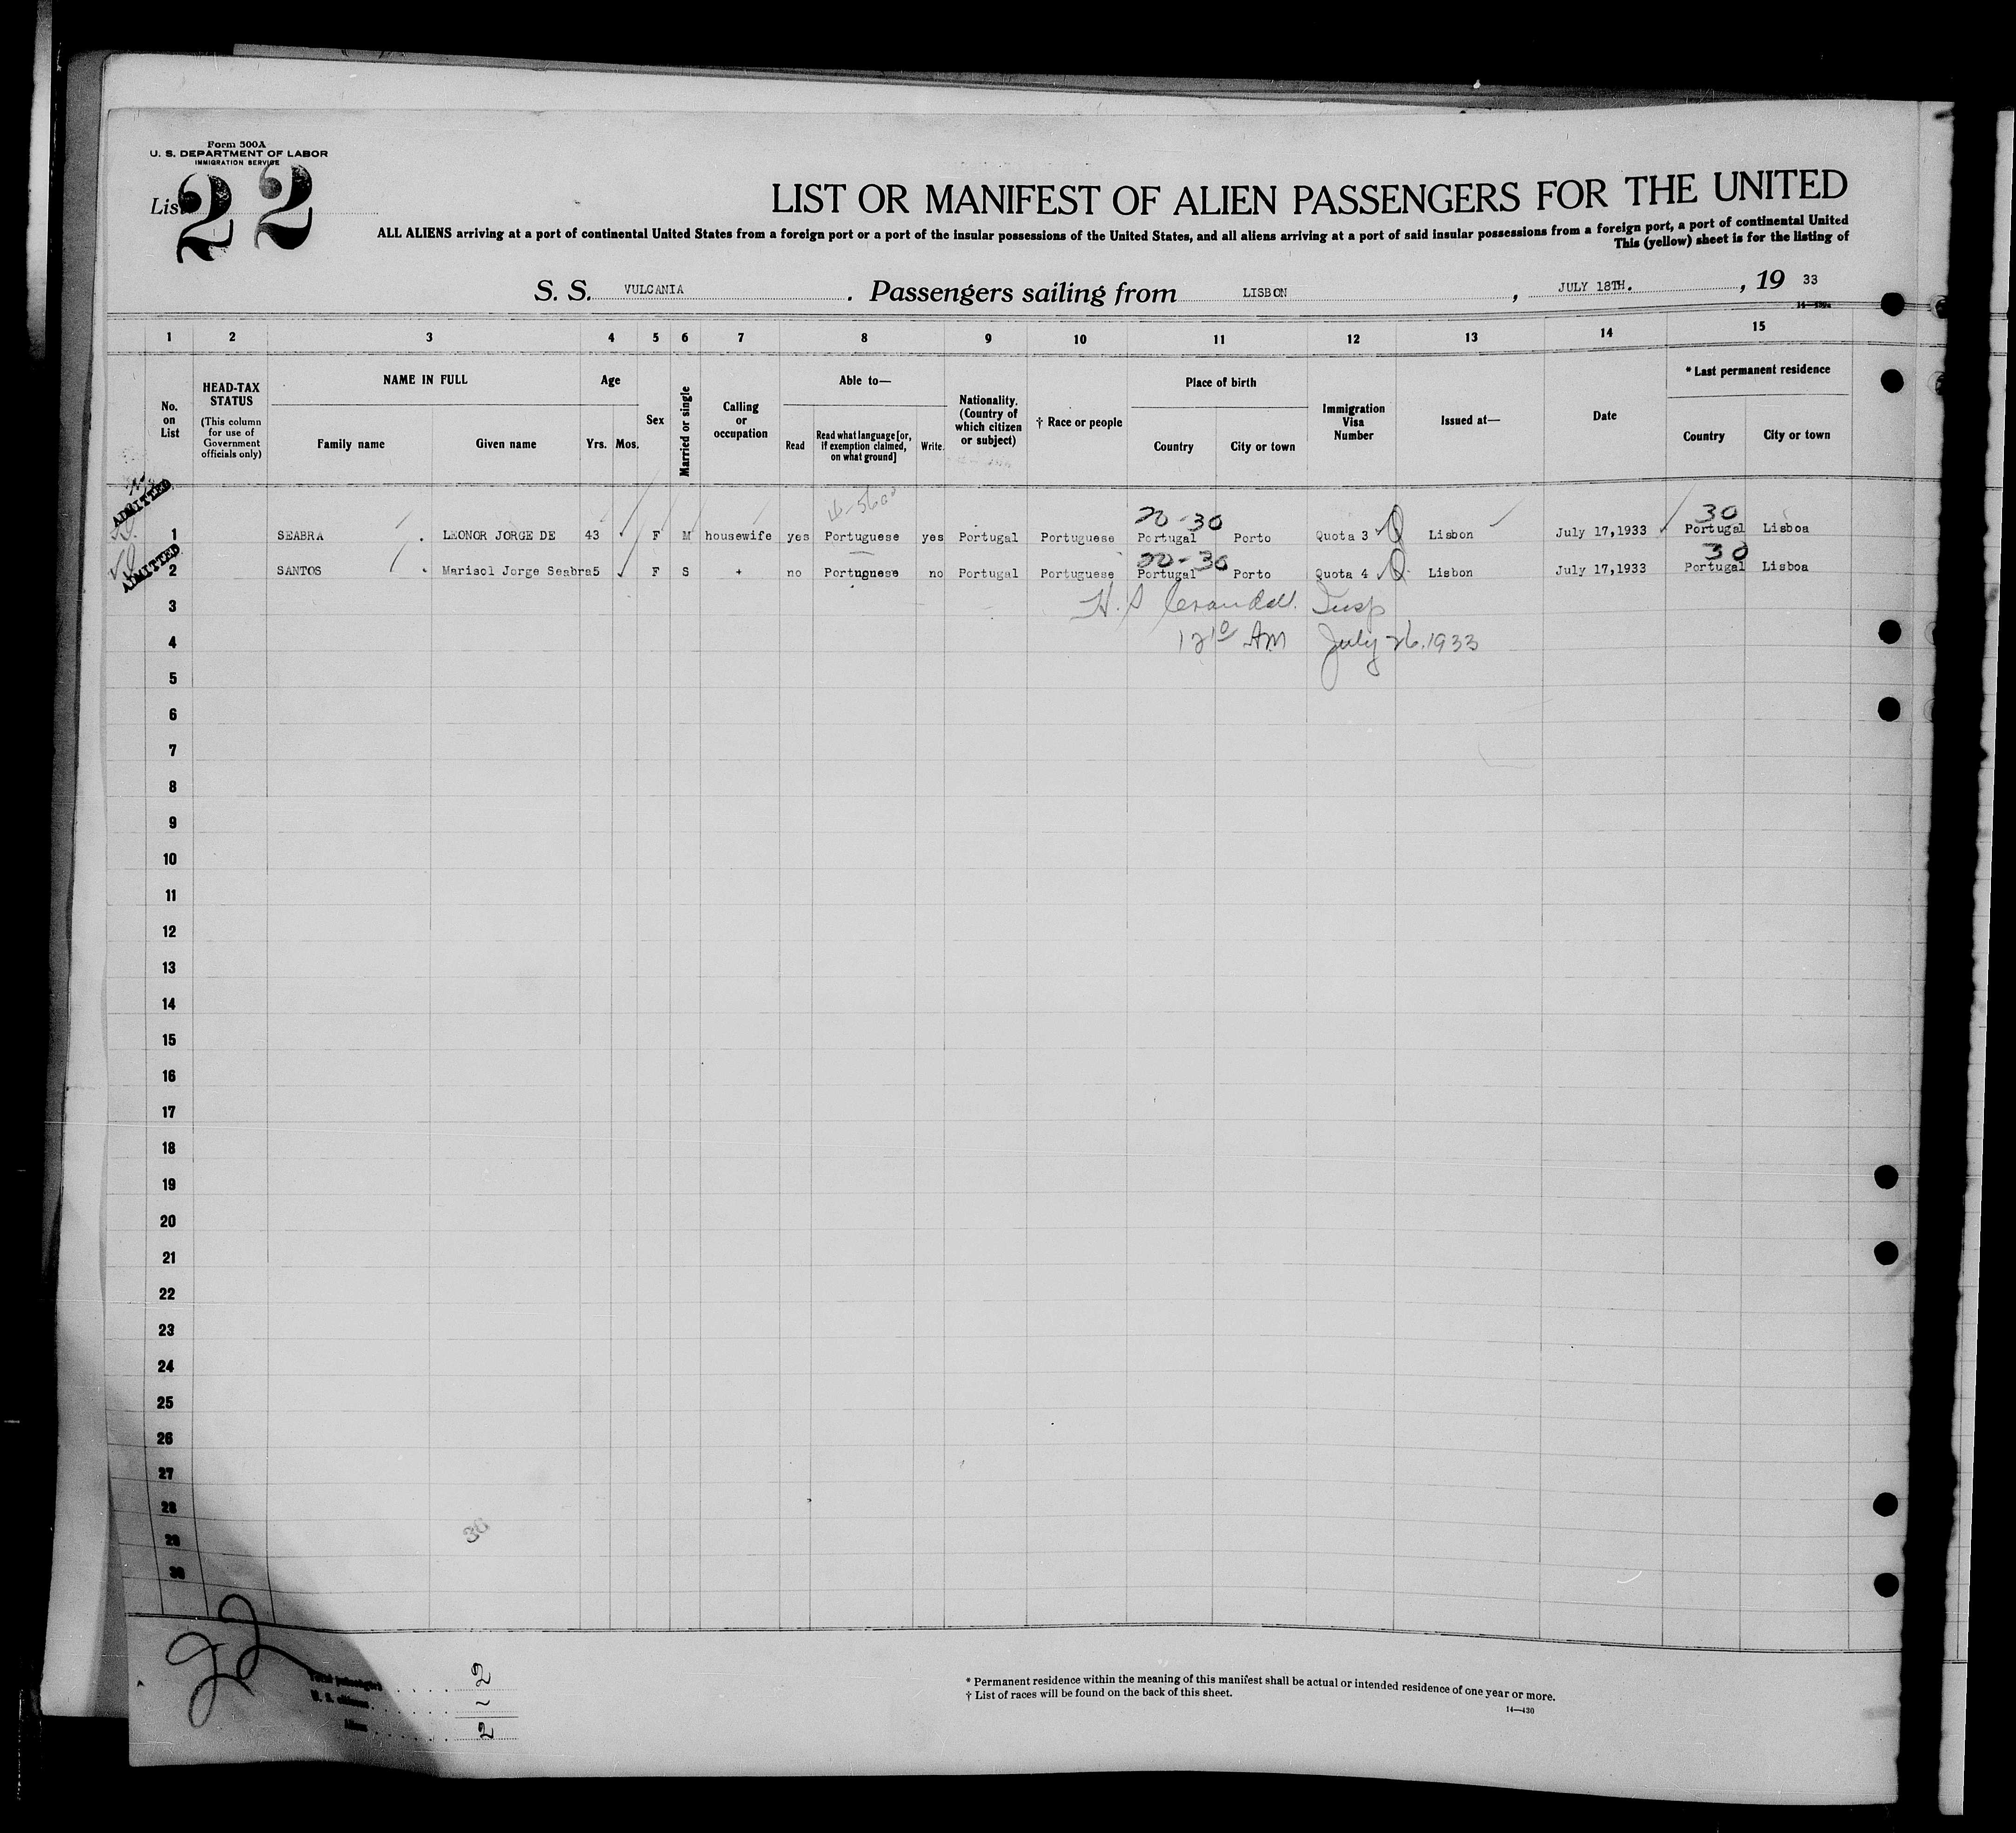 Form 500A
U. S. DEPARTMENT OF LABOR
IMMIGRATION SERVICE
List 22
LIST OR MANIFEST OF ALIEN PASSENGERS FOR THE UNITED
ALL ALIENS arriving at a port of continental United States from a foreign port or a port of the insular possessions of the United States, and all aliens arriving at a port of said insular possessions from a foreign port, a port of continental United
This (yellow) sheet is for the listing of
S. S. VULCANIA . Passengers sailing from LISBON , JULY 18TH. , 19 33
1 2 3 4 5 6 7 8 9 10 11 12 13 14 15
No. on List
HEAD-TAX STATUS
(This column for use of Government officials only)
NAME IN FULL
Family name
Given name
Age
Yrs. Mos.
Sex
Married or single
Calling or occupation
Able to—
Read
Read what language [or, if exemption claimed, on what ground]
Write
Nationality. (Country of which citizen or subject)
† Race or people
Place of birth
Country
City or town
Immigration Visa Number
Issued at—
Date
* Last permanent residence
Country
City or town
ADMITTED
20-30 30
1 SEABRA LEONOR JORGE DE 43 F M housewife yes Portuguese yes Portugal Portuguese Portugal Porto Quota 3 Lisbon July 17,1933 Portugal Lisboa
ADMITTED
20-30 30
2 SANTOS Marisol Jorge Seabra 5 F S + no Portuguese no Portugal Portuguese Portugal Porto Quota 4 Lisbon July 17,1933 Portugal Lisboa
3 H. S Crandall. Insp
4 12 10 AM July 26, 1933
5
6
7
8
9
10
11
12
13
14
15
16
17
18
19
20
21
22
23
24
25
26
27
28
29
30
36
22
Total passengers . . . . 2
U. S. citizens . . . . . . ~
Aliens . . . . . . 2
* Permanent residence within the meaning of this manifest shall be actual or intended residence of one year or more.
† List of races will be found on the back of this sheet.
14—430